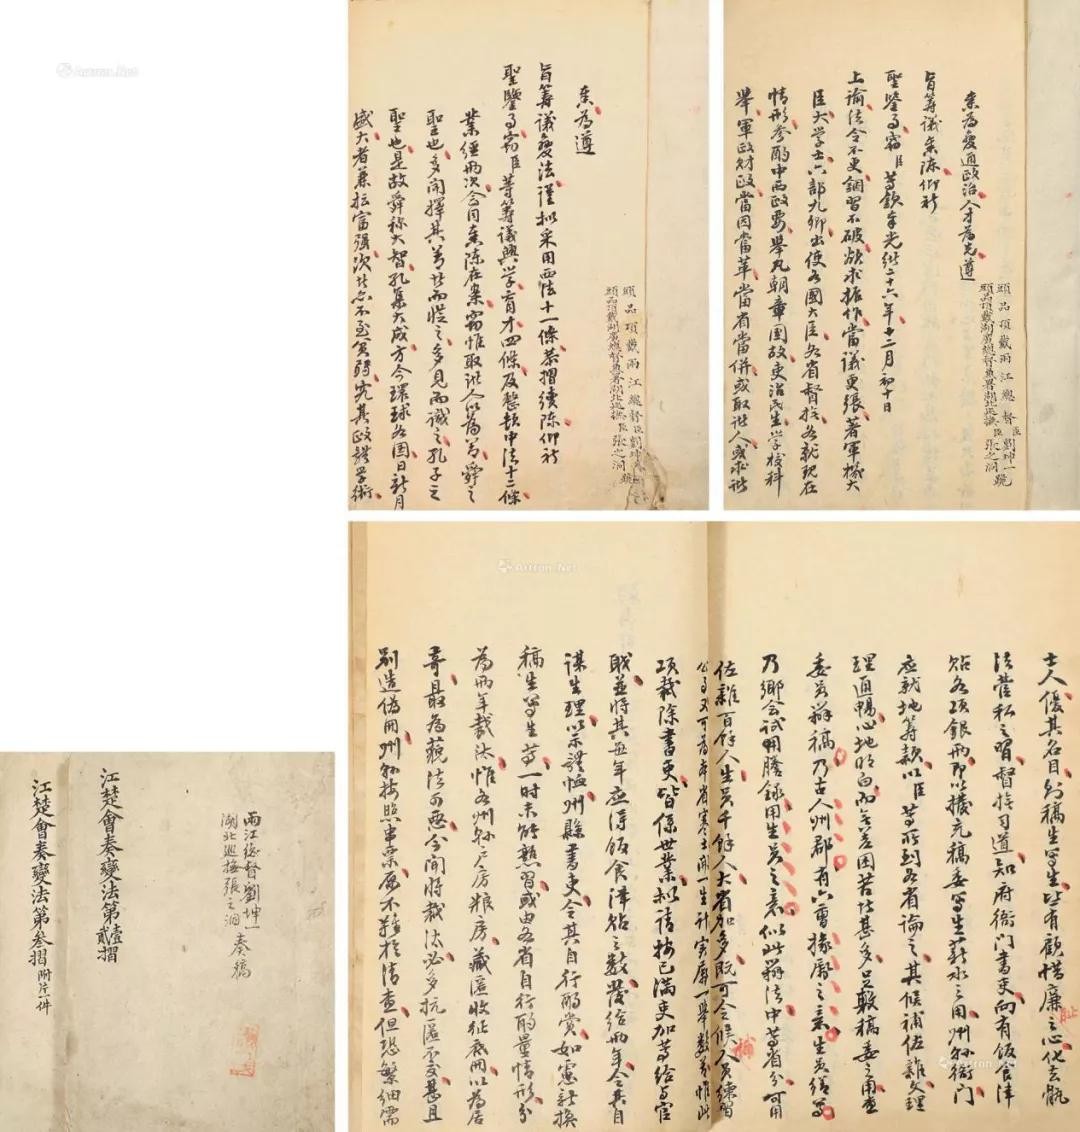 頭品頂戴兩江總督臣劉坤一跪
頭品頂戴湖廣總督兼署湖北巡撫臣張之洞
奏為變通政治人才為先遵
旨籌議奏陳仰祈
聖鑒事竊臣等欽奉光緒二十六年十二月初十日
上諭法令不更錮習不破欲求振作當議更張著軍機大
臣大學士六部九卿出使各國大臣各省督撫各就現在
情形參酌中西政要舉凡朝章國故吏治民生學校科
舉軍政財政當因當革當省當併或取諸人或求諸
頭品頂戴兩江總督臣劉坤一
頭品頂戴湖廣總督兼署湖北巡撫臣張之洞跪
奏為遵
旨籌議變法謹擬采用西法十一條恭摺續陳仰祈
聖鑒事竊臣等籌議興學育才四條及整頓中法十二條
業經兩次會同奏陳在案竊惟取諸人以為善舜之
聖也多聞擇其善者而從之多見而識之孔子之
聖也是故舜稱大智孔集大成方今環球各國日新月
盛大者兼擅富強次者亦不至貧弱究其政體學術
士人優其名目列稿生寫生皆有顧惜廉恥之心化去骫
法營私之習督撫司道知府衙門書吏向有飯食津
貼各項銀兩即以撥充稿委寫生薪水之用州縣衙門
應就地籌款以臣等所到各省論之其候補佐雜文理
理通暢心地明白而無差困苦者甚多足敷稿委之用查
委員辦稿乃古人州郡有六曹掾屬之意生員繕寫
乃鄉會試用謄錄用生員之意似此辦法中等省分可用
佐雜百餘人生員千餘人大省加多既可令候補人員練習
公事又可為本省寒士開一生計實屬一舉數善惟此
項裁除書吏皆係世業擬請按已滿吏加等給與官
職並將其五年應得飯食津貼之數發給兩年令其自
謀生理以示體恤州縣書吏令其自行酌賞如慮新換
稿生寫生等一時未能熟習或由各省自行酌量情形分
為兩年裁汰惟各州縣戶房糧房藏匿收徵底冊以為居
奇且最為藐法可惡今聞將裁汰必多抗匿不交甚且
別造偽冊州縣按照串票原不難於清查但恐繁細需
兩江總督劉坤一
湖北巡撫張之洞
奏稿
江楚會奏變法第壹
貳摺
江楚會奏變法第叁摺附片一件
Artron.Net
Artron.Net